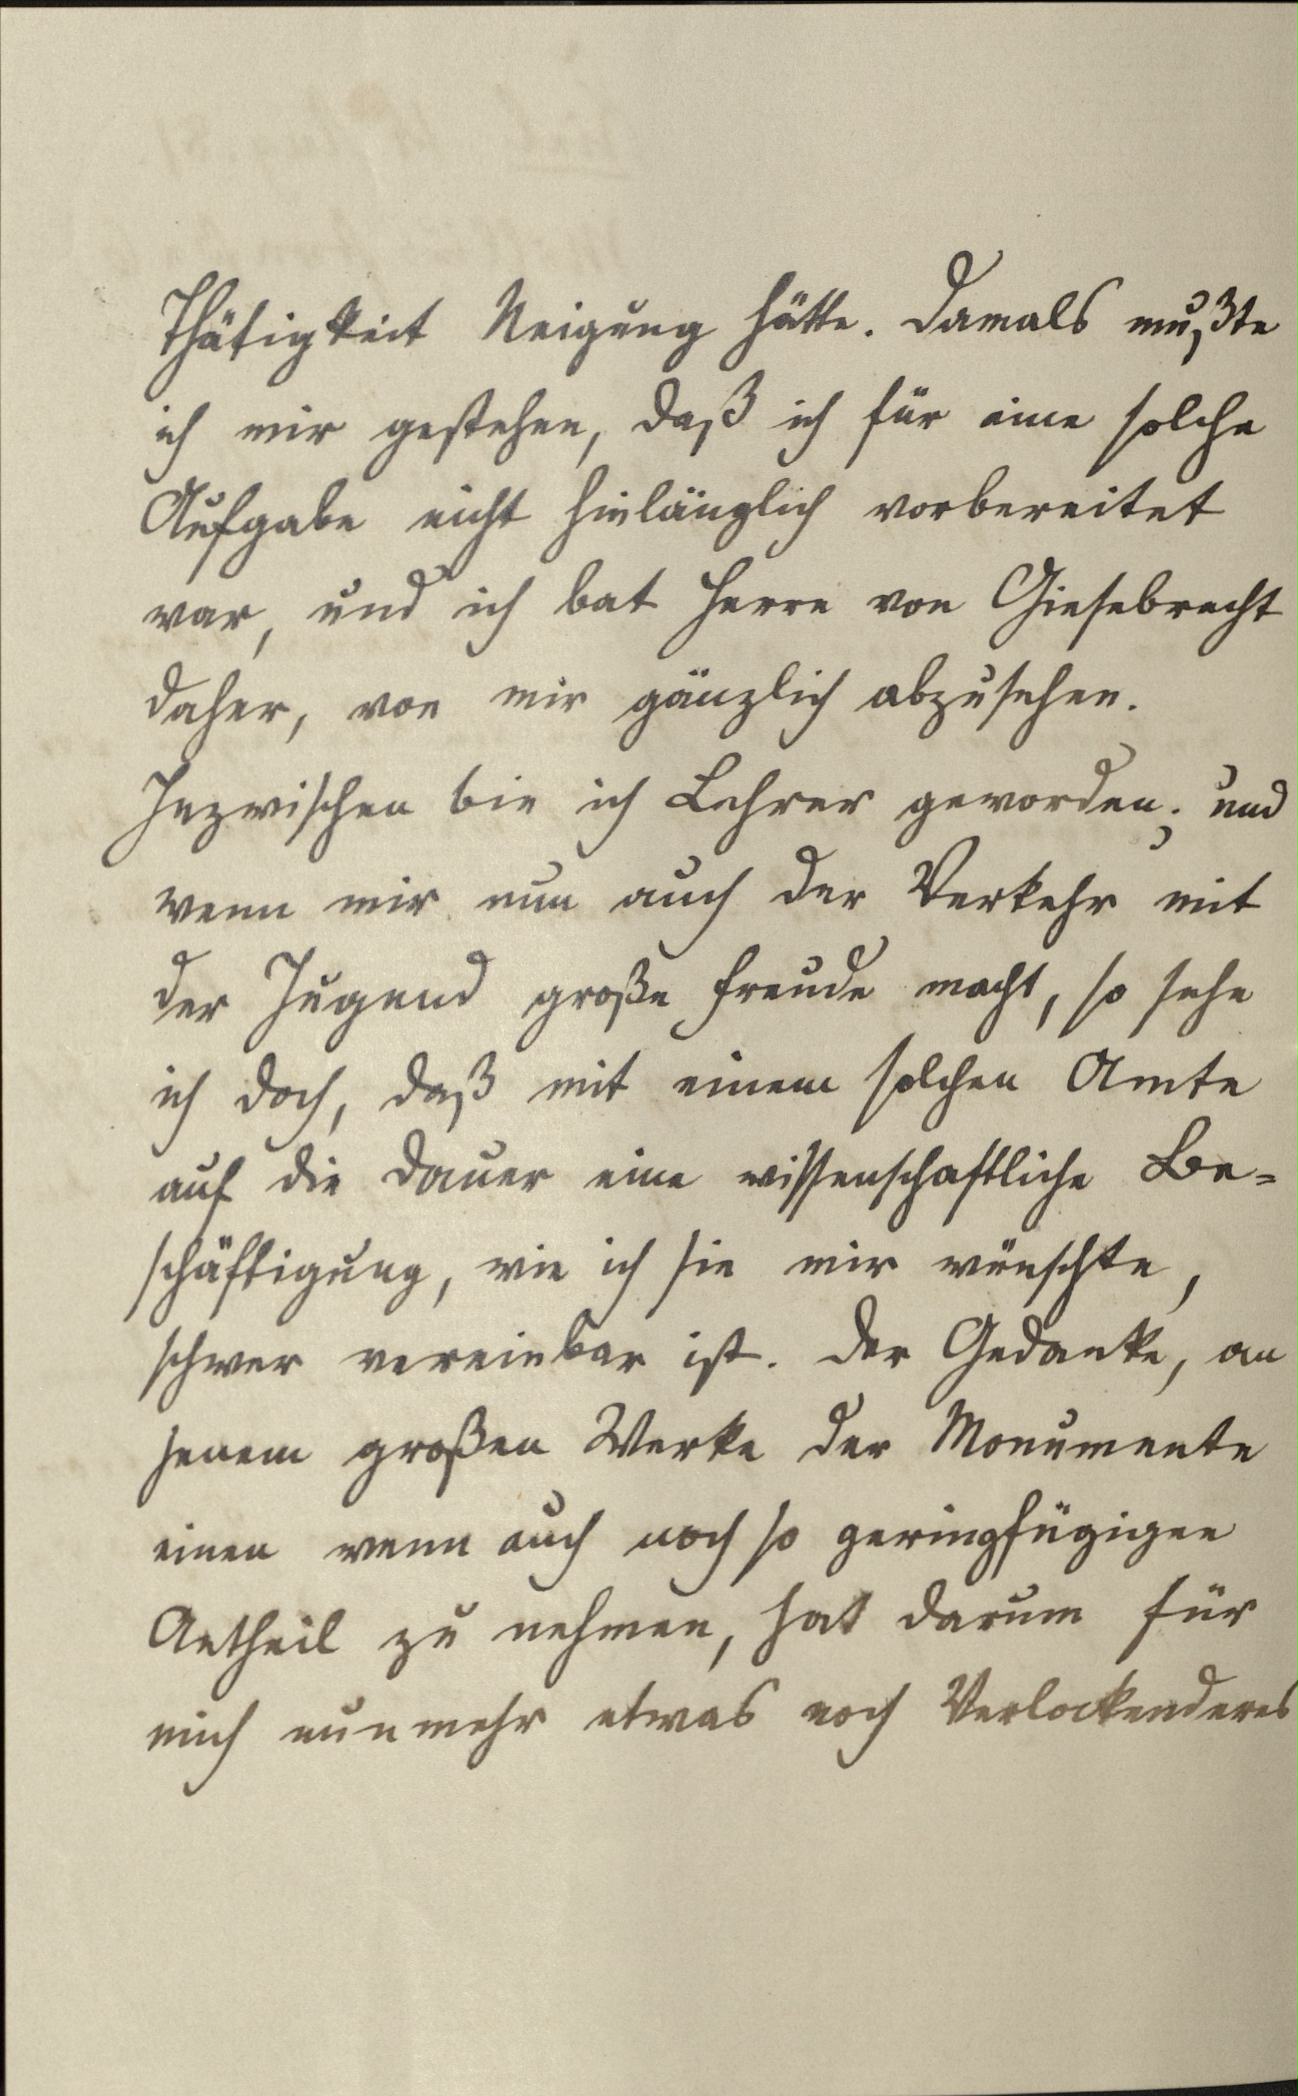 Thätigkeit Neigung hätte. Damals mußte
ich mir gestehen, daß ich für eine solche
Aufgabe nicht hinlänglich vorbereitet
war, und ich bat Herrn von Giesebrecht
daher, von mir gänzlich abzusehen.
Inzwischen bin ich Lehrer geworden; und
wenn mir nun auch der Verkehr mit
der Jugend große Freude macht, so sehe
ich doch, daß mit einem solchen Amte
auf die Dauer eine wissenschaftliche Be=
schäftigung, wie ich sie mir wünschte,
schwer vereinbar ist. Der Gedanke, an
jenem großen Werke der Monumente
einen wenn auch noch so geringfügigen
Antheil zu nehmen, hat darum für
mich nunmehr etwas noch Verlockenderes